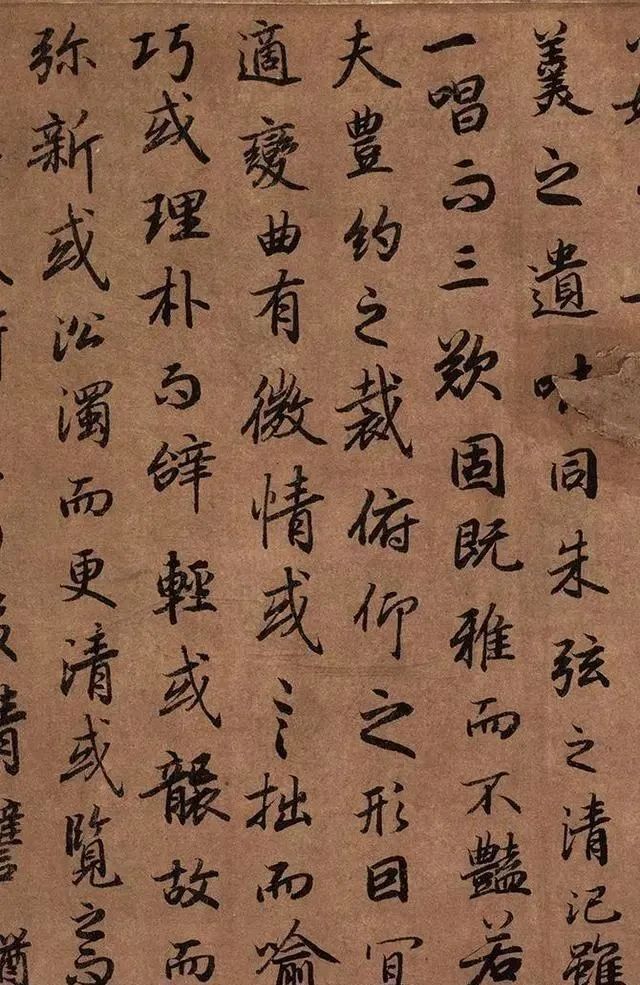 羹之遺味同朱弦之清汜雖
一唱而三歎固既雅而不豔若
夫豊約之裁俯仰之形因宜
適變曲有微情或言拙而喻
巧或理朴而辞輕或襲故而
弥新或沿濁而更清或覽之而